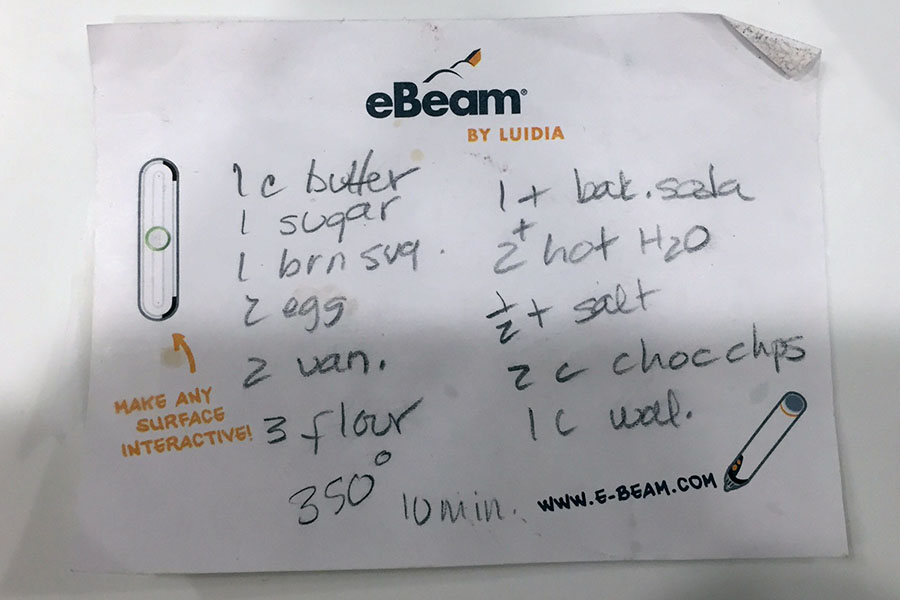 eBeam®
BY LUIDIA
1 c butter
1 sugar
1 brn sug.
2 egg
2 van.
3 flour
350°
10 min.
1 t bak. soda
2 t hot H2O
1/2 t salt
2 c choc chps
1 c wal.
MAKE ANY
SURFACE
INTERACTIVE!
WWW.E-BEAM.COM